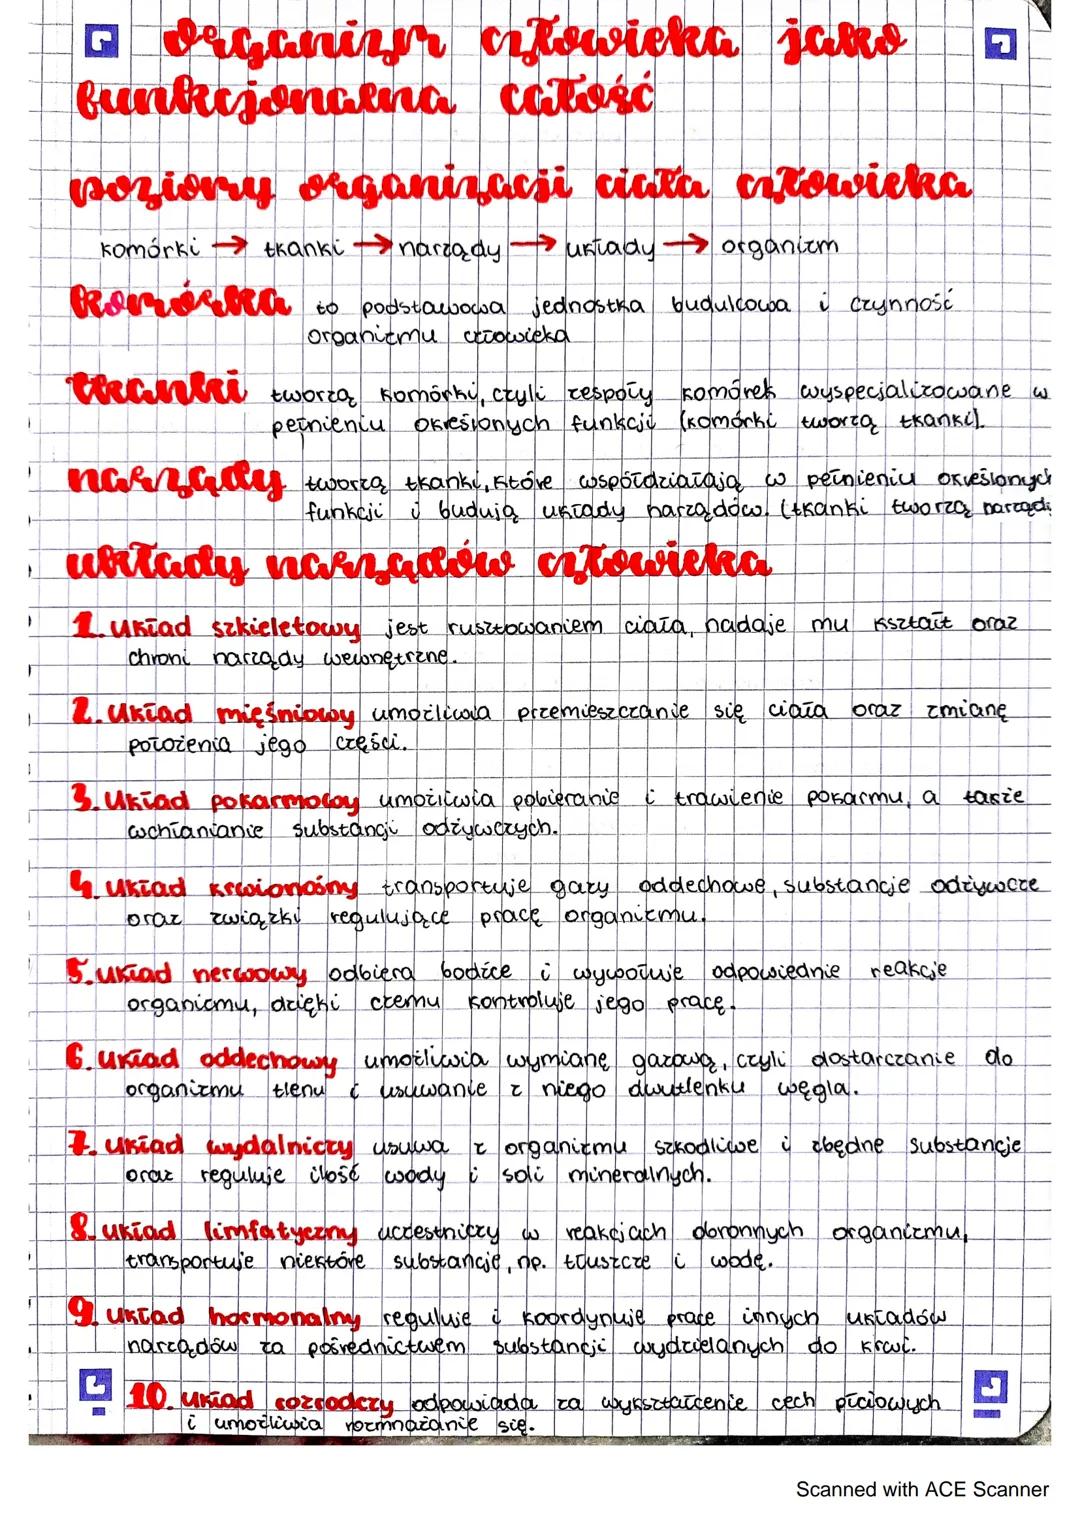 organizm człowieka jako
funkcjonalna całość
poziomy organizacji ciała człowieka
komórki → tkanki → narządy → układy → organizm
komórka to podstawowa jednostka budulcowa i czynność
organizmu człowieka
tkanki tworzą komórki, czyli zespoły komórek wyspecjalizowane w
pełnieniu określonych funkcji (komórki tworzą tkanki).
narządy tworzą tkanki, które współdziałają w pełnieniu określonych
funkcji i budują układy narządów. (tkanki tworzą narządy
układy narządów człowieka
1. układ szkieletowy jest rusztowaniem ciała, nadaje mu kształt oraz
chroni narządy wewnętrzne.
2. układ mięśniowy umożliwia przemieszczanie się ciała oraz zmianę
położenia jego części.
3. układ pokarmowy umożliwia pobieranie i trawienie pokarmu, a także
wchłanianie substancji odżywczych.
4. układ krwionośny transportuje gazy oddechowe, substancje odżywcze
oraz związki regulujące pracę organizmu.
5. układ nerwowy odbiera bodźce i wywołuje odpowiednie reakcje
organizmu, dzięki czemu kontroluje jego pracę.
6. układ oddechowy umożliwia wymianę gazową, czyli dostarczanie do
organizmu tlenu i usuwanie z niego dwutlenku węgla.
7. układ wydalniczy usuwa z organizmu szkodliwe i zbędne substancje
oraz reguluje ilość wody i soli mineralnych.
8. układ limfatyczny uczestniczy w reakcjach obronnych organizmu,
transportuje niektóre substancje, np. tłuszcze i wodę.
9. układ hormonalny reguluje i koordynuje prace innych układów
narządów za pośrednictwem substancji wydzielanych do krwi.
10. układ rozrodczy odpowiada za wykształcenie cech płciowych
i umożliwia rozmnażanie się.
Scanned with ACE Scanner